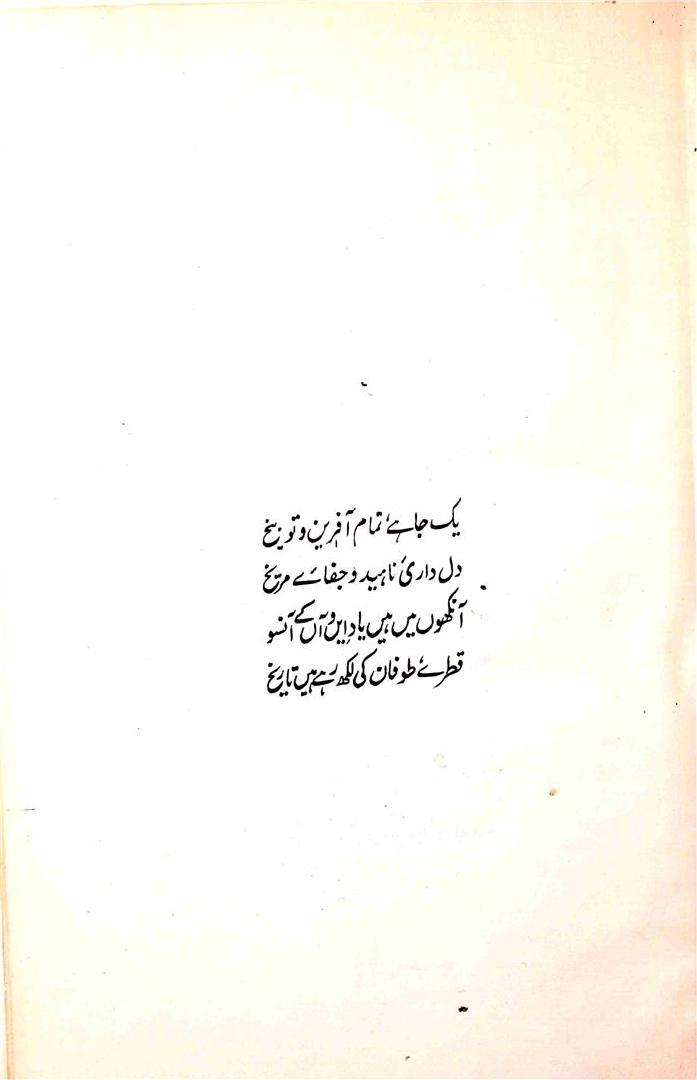 یک جا ہے، تمام آفرین و توبیخ
دل داریٔ ناہید و جفائے مریخ
آنکھوں میں ہیں یادِ این و آں کے آنسو
قطرے، طوفان کی لکھ رہے ہیں تاریخ